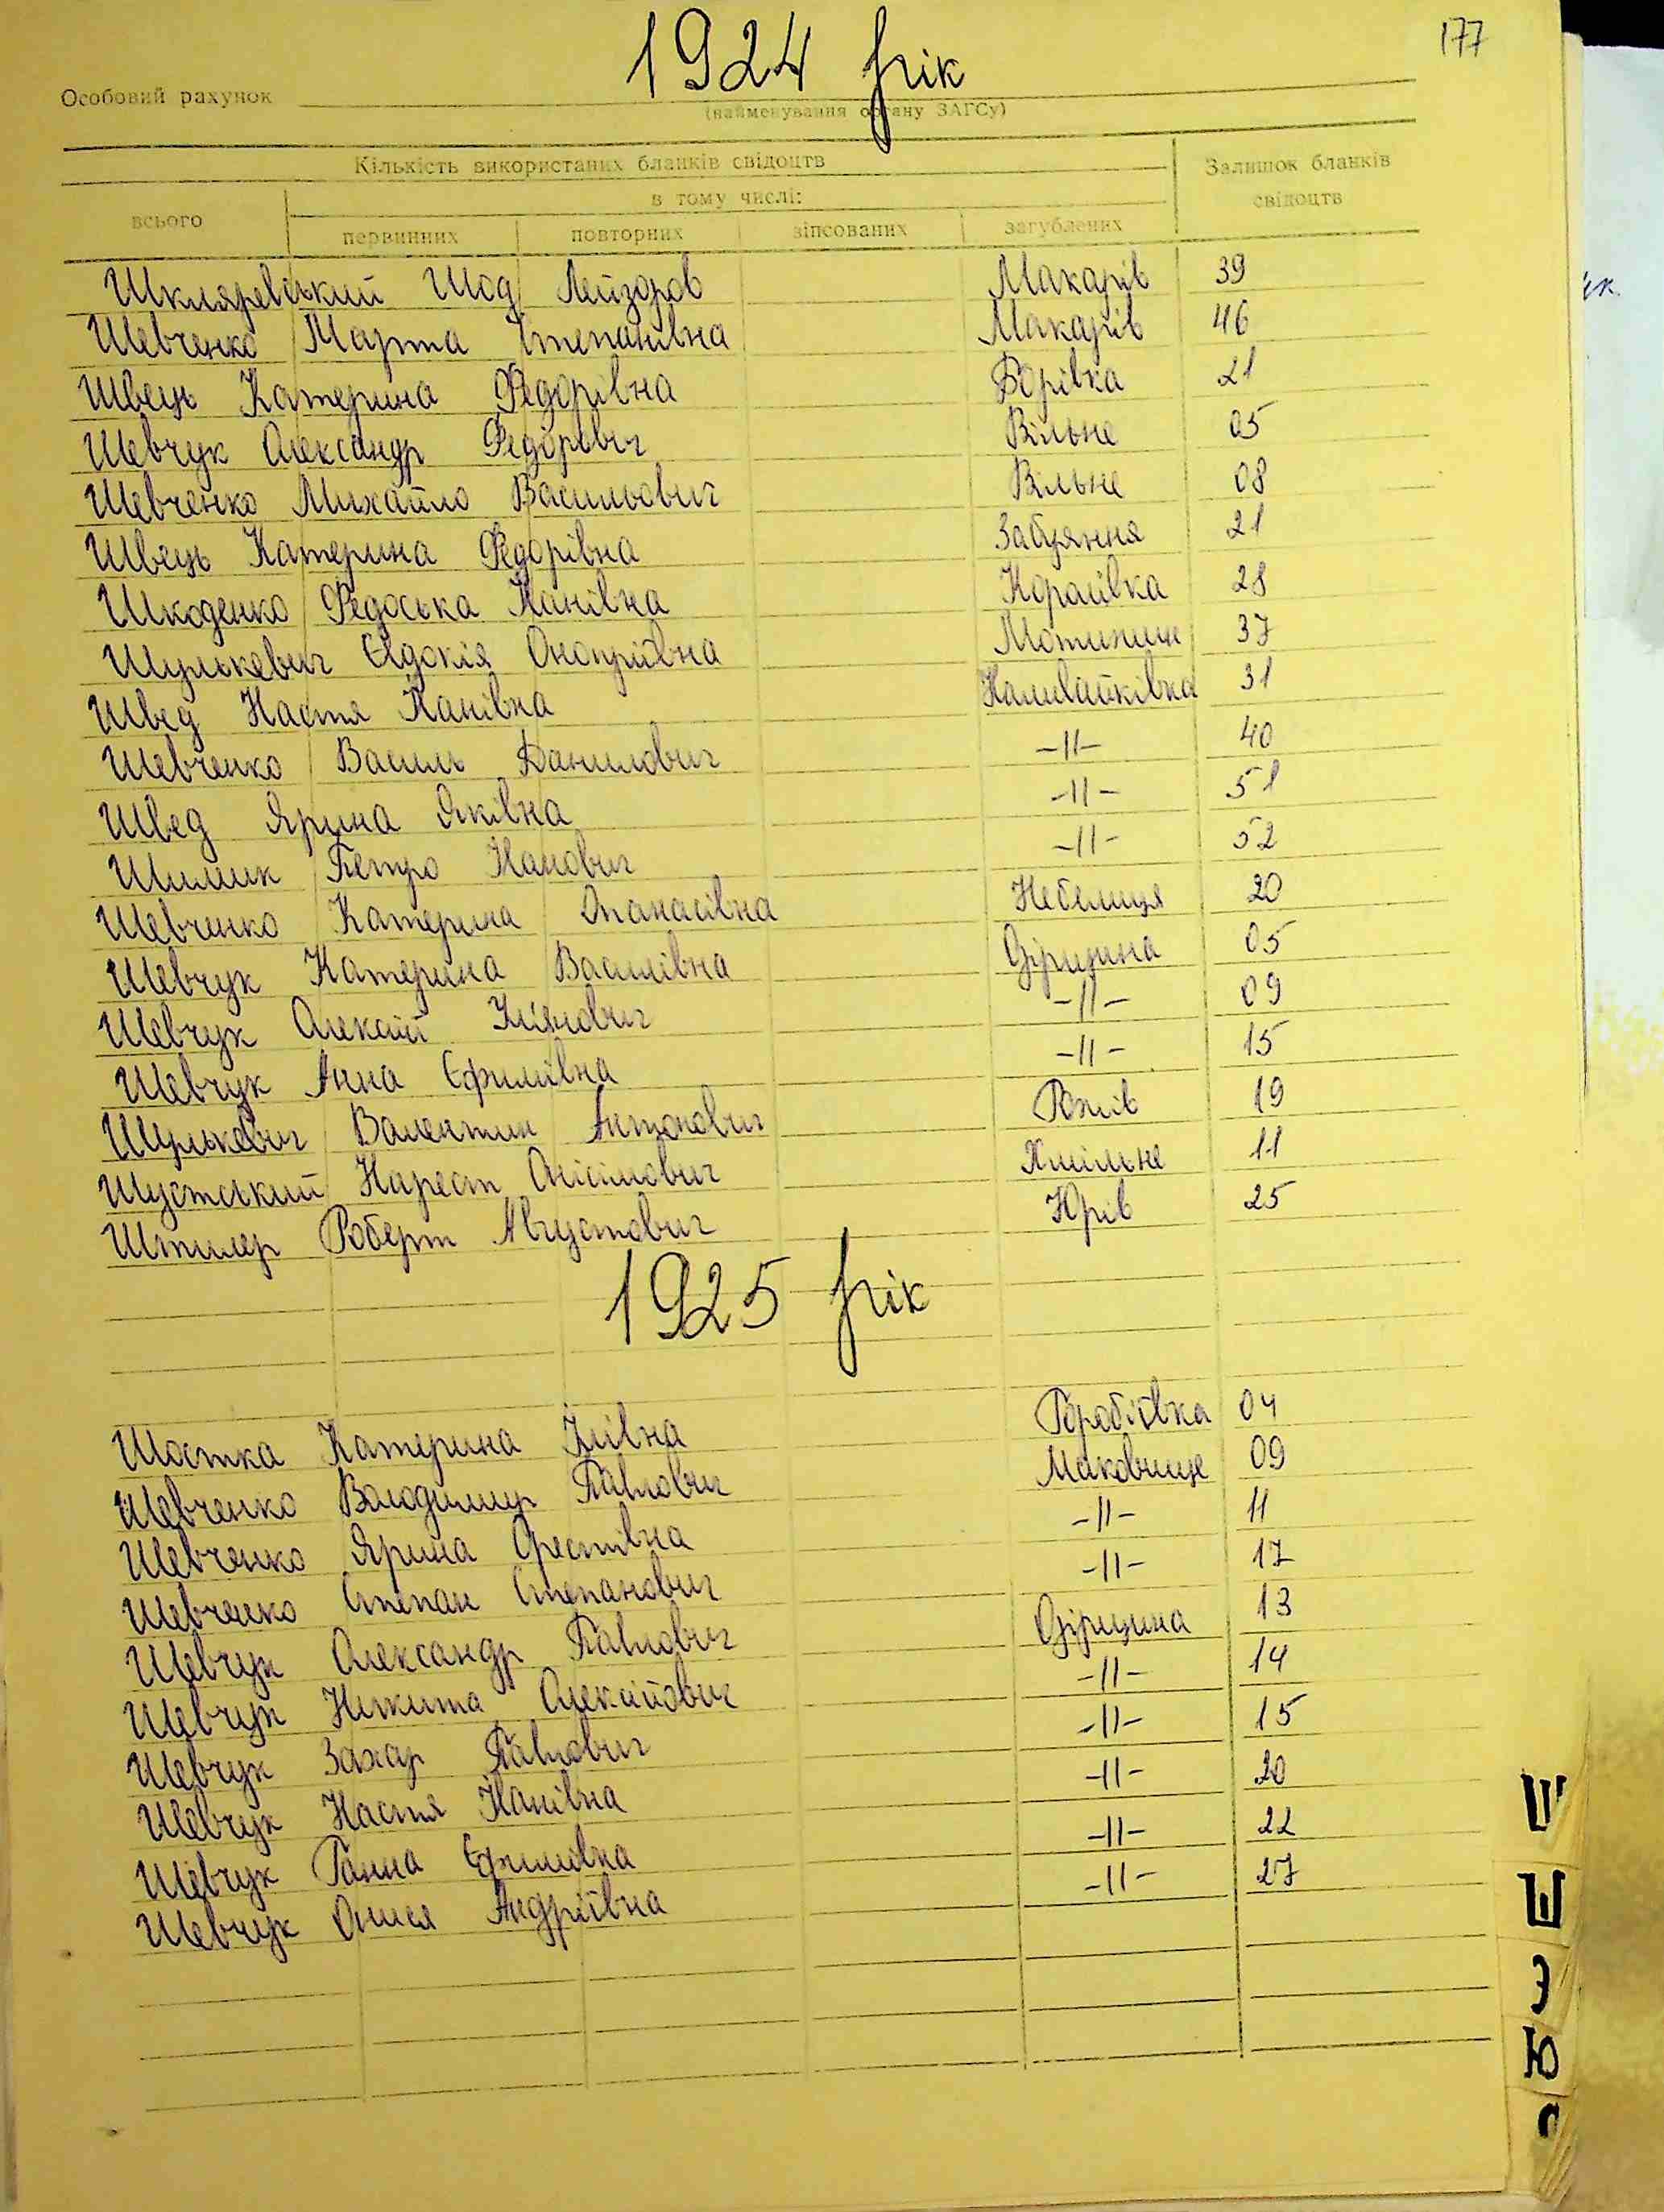 177
1924 рік
Особовий рахунок
(найменування органу ЗАГСу)
Кількість використаних бланків свідоцтв
Залишок бланків свідоцтв
в тому числі:
всього первинних повторних зіпсованих загублених
Шкляревський Шод Лейзоров Макарів 39
Шевченко Марта Степанівна Макарів 46
Швець Катерина Федорівна Борівка 21
Шевчук Александр Федорович Вільне 05
Шевченко Михайло Васильович Вільне 08
Швець Катерина Федорівна Забуяння 21
Шкоденко Федоська Іванівна Королівка 28
Шулькевич Євдокія Оноприївна Мотижин 37
Швед Настя Іванівна Наливайківка 31
Шевченко Василь Данилович -11- 40
Швед Ярина Яківна -11- 51
Петро Іванович -11- 52
Шевченко Катерина Опанасівна Небелиця 20
Шевчук Катерина Василівна 05
Шевчук Алексій Улянович -11- 09
Шевчук Анна Єфимівна -11- 15
Шулькевич Валентин Антонович Рожів 19
Шустський Онісімович Хмільне 11
Штилер Роберт Августович Юрів 25
1925 рік
Шостка Катерина Ілівна Воробіївка 04
Шевченко Володимир Павлович Маковище 09
Шевченко Ярина Орестівна -11- 11
Шевченко Степан Степанович -11- 17
Шевчук Олександр Павлович 13
Шевчук Никита Олексійович -11- 14
Шевчук Захар Павлович -11- 15
Шевчук Настя Іванівна -11- 20
Шевчук Ганна Єфимівна -11- 22
Шевчук Онися Андріївна -11- 27
Ш
Щ
Э
Ю